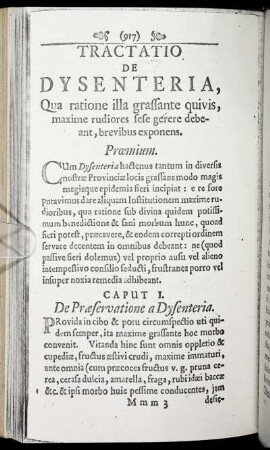 (917)
TRACTATIO
DE
DYSENTERIA,
Qua ratione illa grassante quivis,
maxime rudiores sese gerere debe-
ant, brevibus exponens.
Prœmium.
CUm Dysenteria hactenus tantum in diversis
nostræ Provinciæ locis grassans modo magis
magisque epidemia fieri incipiat : e re fore
putavimus dare aliquam Institutionem maxime ru-
dioribus, qua ratione sub divina quidem potissi-
mum benedictione & sani morbum hunc, quoad
fieri potest, præcavere, & eodem correpti ordinem
servare decentem in omnibus debeant : ne (quod
passive fieri dolemus) vel proprio ausu vel alieno
intempestivo consilio seducti, frustranea porro vel
insuper noxia remedia adhibeant.
CAPUT I.
De Præservatione a Dysenteria.
PRovida in cibo & potu circumspectio uti qui-
dem semper, ita maxime grassante hoc morbo
convenit. Vitanda hinc sunt omnis oppletio &
cupediæ, fructus æstivi crudi, maxime immaturi,
ante omnia (cum præcoces fructus v. g. pruna ce-
rea, cerasa dulcia, amarella, fraga, rubi idæi baccæ
&c. & ipsi morbo huic pessime conducentes, jam
M m m 3 desie-